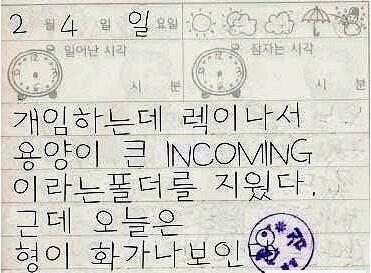 2 월 4 일 일 요일
일어난 시각
잠자는 시각
시 분
시 분
개임하는데 렉이나서
용양이 큰 INCOMING
이라는폴더를 지웠다.
근데 오늘은
형이 화가나보인다